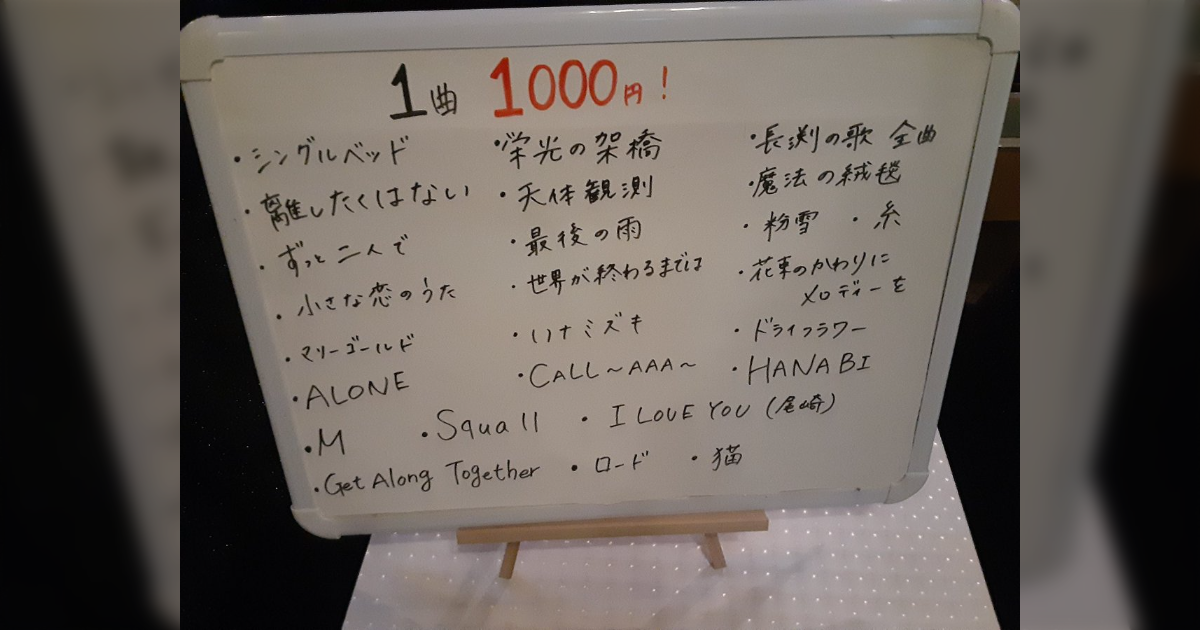 1曲 1000円!
・シングルベッド ・栄光の架橋 ・長渕の歌 全曲
・離したくはない ・天体観測 ・魔法の絨毯
・ずっと二人で ・最後の雨 ・粉雪 ・糸
・小さな恋のうた ・世界が終わるまでは ・花束のかわりに
メロディーを
・マリーゴールド ・ハナミズキ ・ドライフラワー
・ALONE ・CALL～AAA～ ・HANABI
・M ・Squall ・I LOVE YOU (尾崎)
・Get Along Together ・ロード ・猫